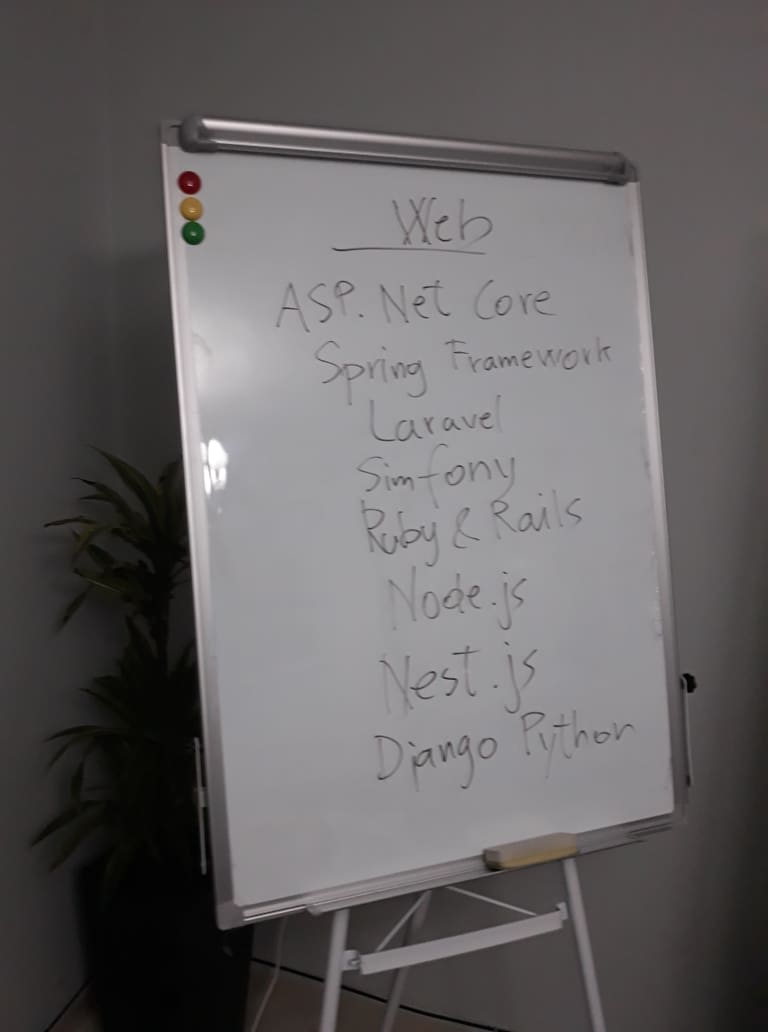 Web
ASP.Net Core
Spring Framework
Laravel
Simfony
Ruby & Rails
Node.js
Nest.js
Django Python